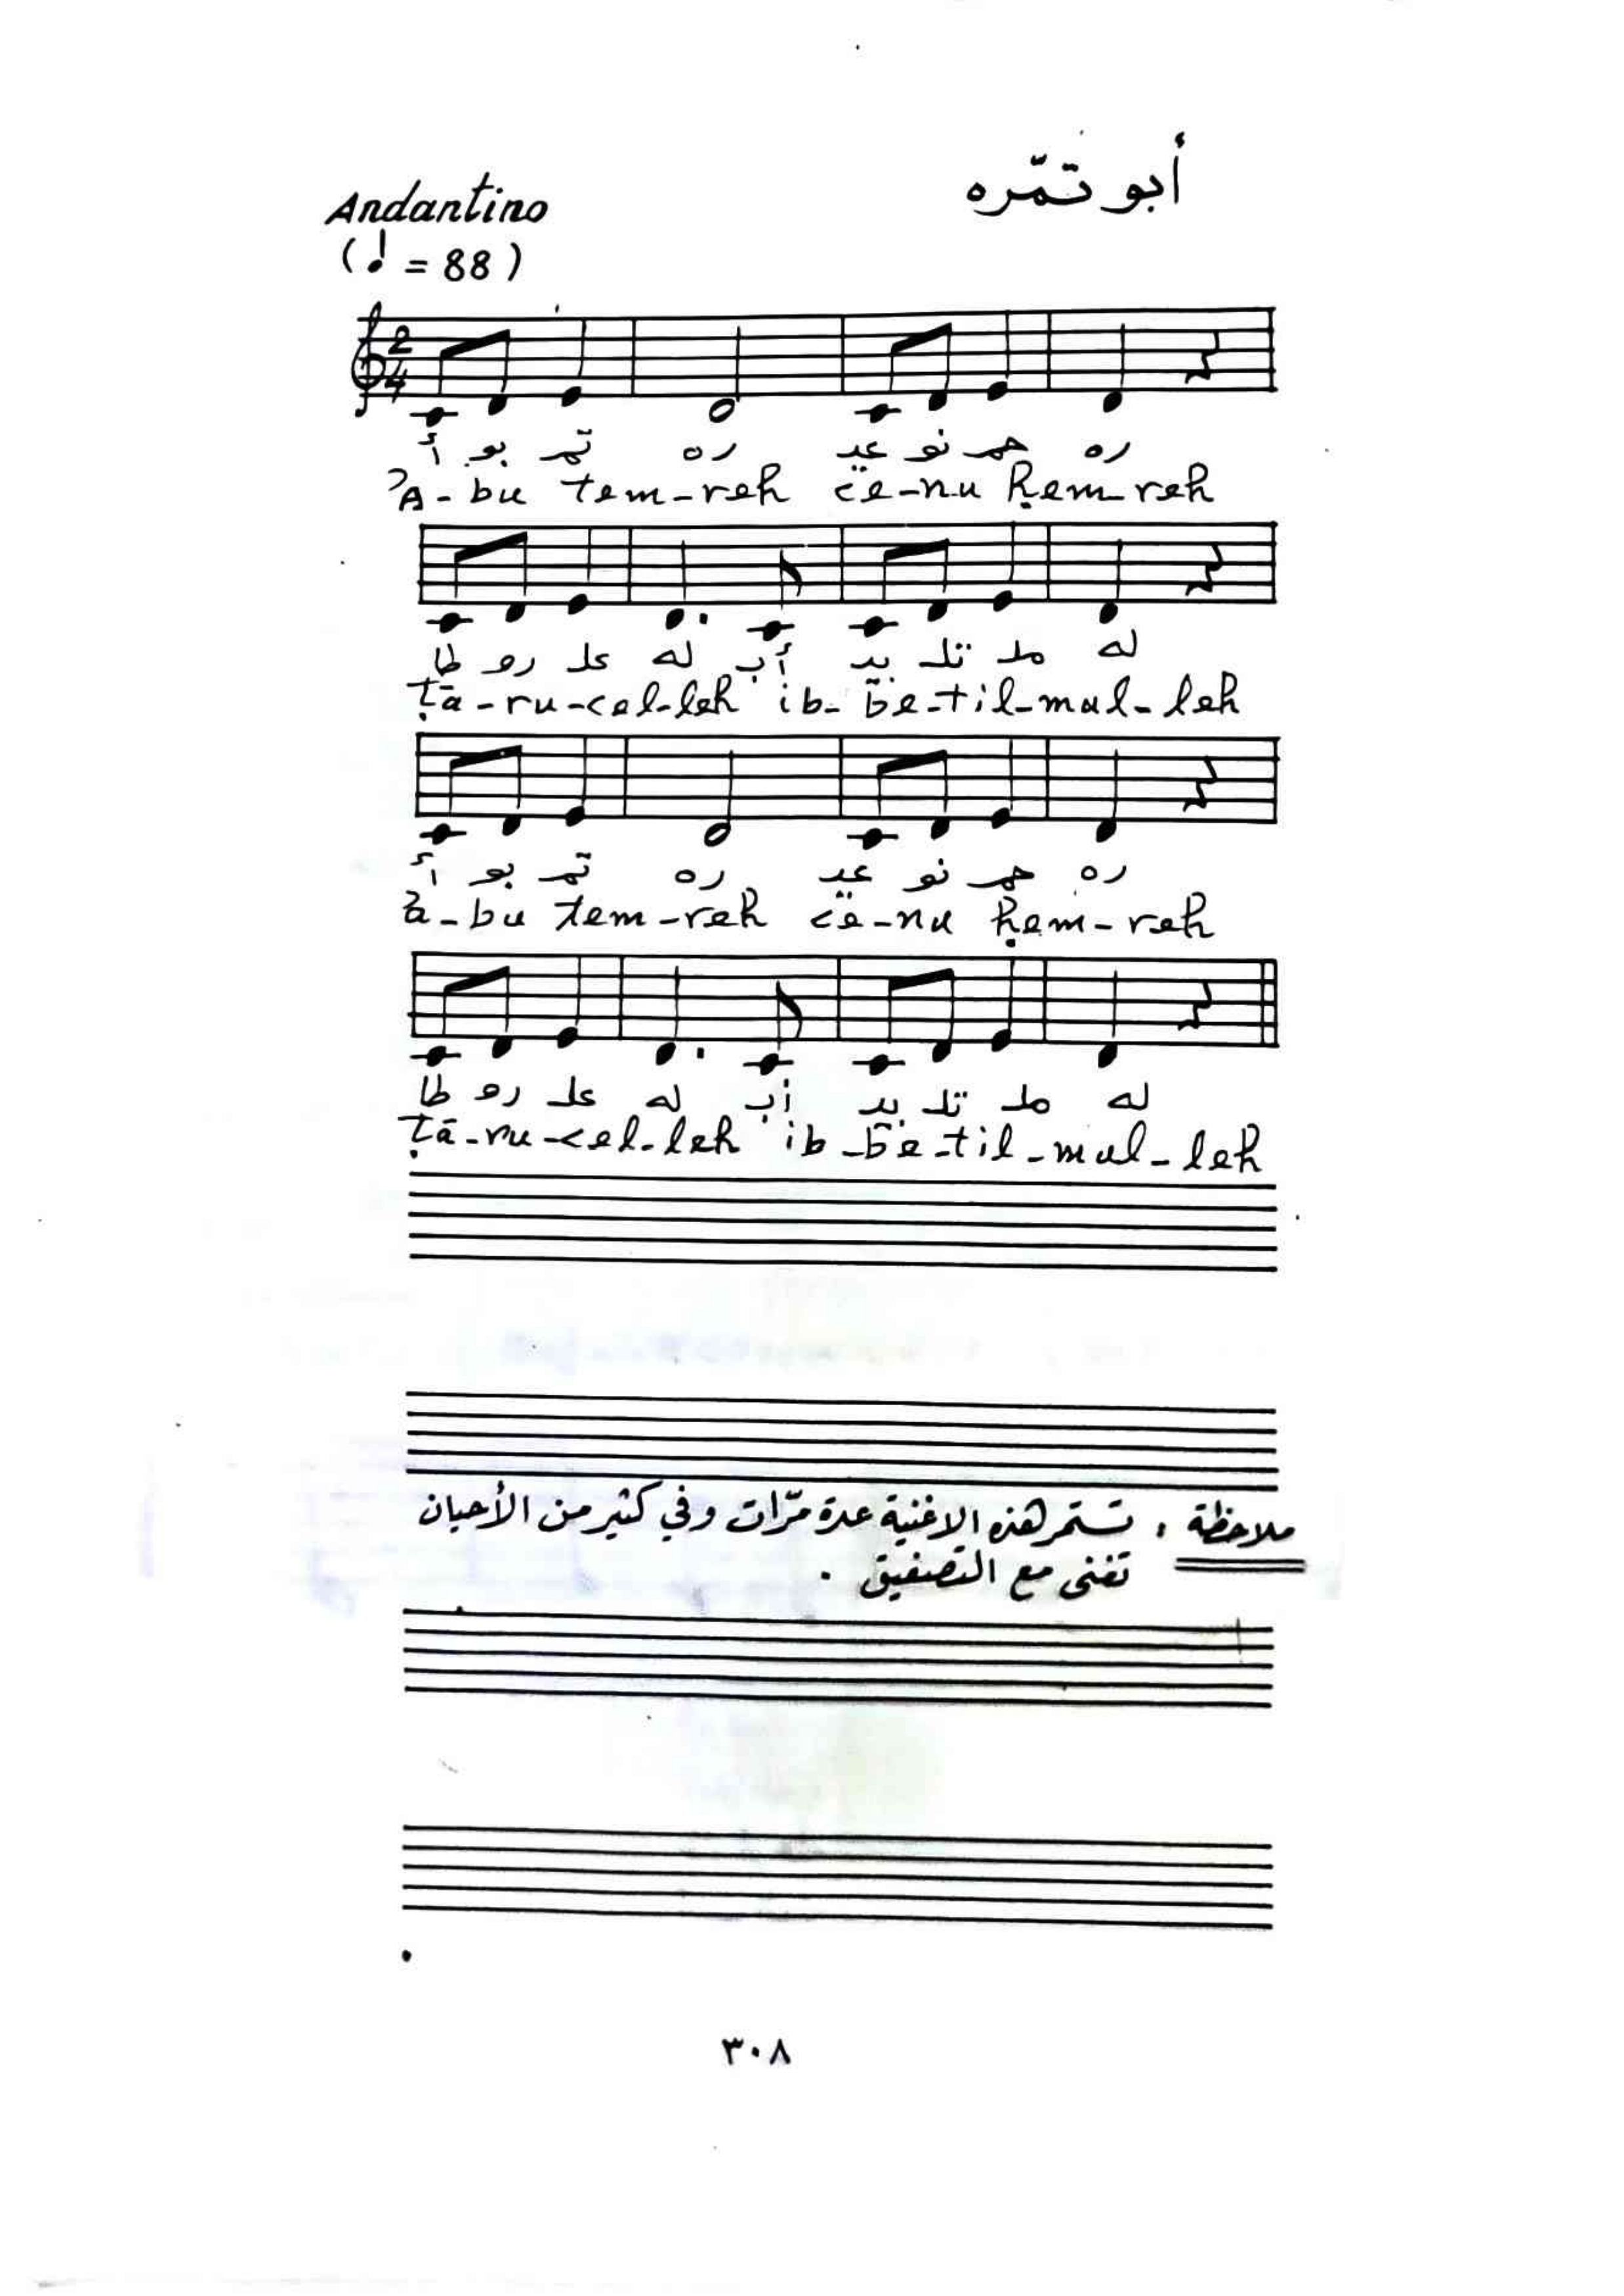 أبو تمّره
Andantino
(♩ = 88)
2
4
أ بو تمـ ره عيـ نو حمـ ره
ʾA-bu tem-reh ċe-nu ḥem-reh
طا رو علـ له أب بيـ تلـ ملـ له
ṭā-ru-cel-leh ib-be-til-mul-leh
أ بو تمـ ره عيـ نو حمـ ره
ʾa-bu tem-reh ċe-nu ḥem-reh
طا رو علـ له أب بيـ تلـ ملـ له
ṭā-ru-cel-leh ib-be-til-mul-leh
ملاحظة : تستمر هذه الاغنية عدة مرّات وفي كثير من الأحيان
تغنى مع التصفيق .
٣٠٨